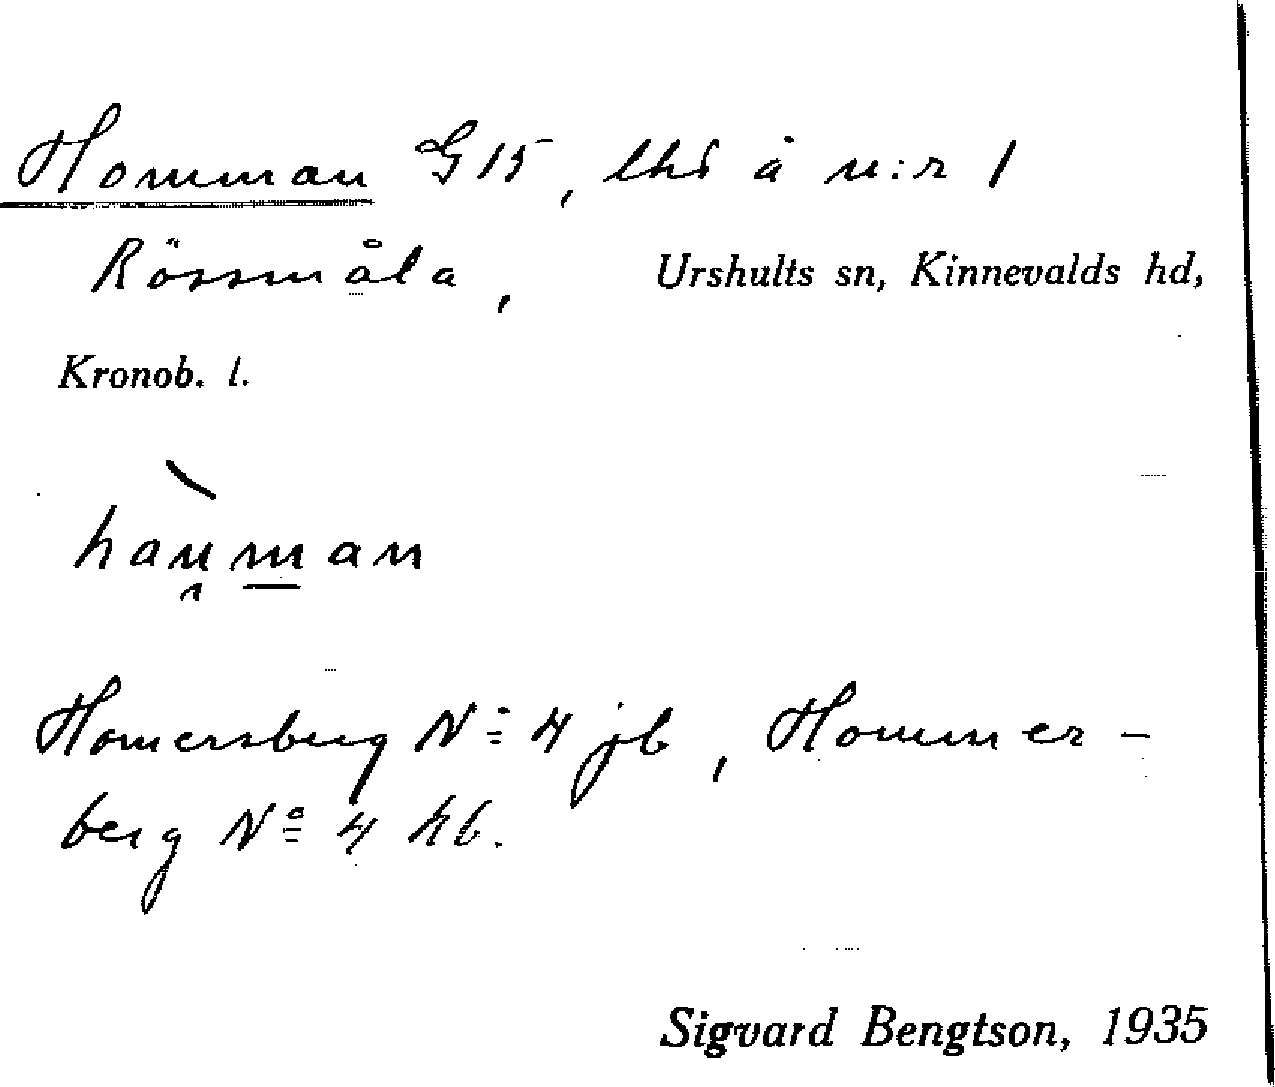 Homman G 15, lhs å n:r 1
Rössmåla, Urshults sn, Kinnevalds hd,
Kronob. l.
hau̯m̲an
Homersberg No 4 jb, Hommer-
berg No 4 hb.
Sigvard Bengtson, 1935